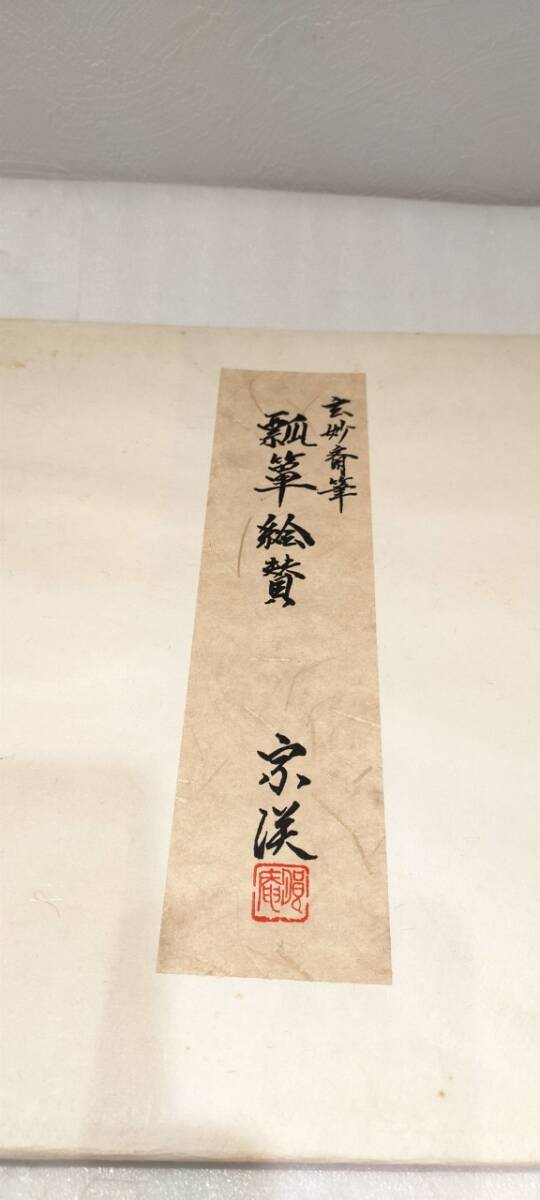 玄妙斎筆
瓢箪絵賛
宗渓